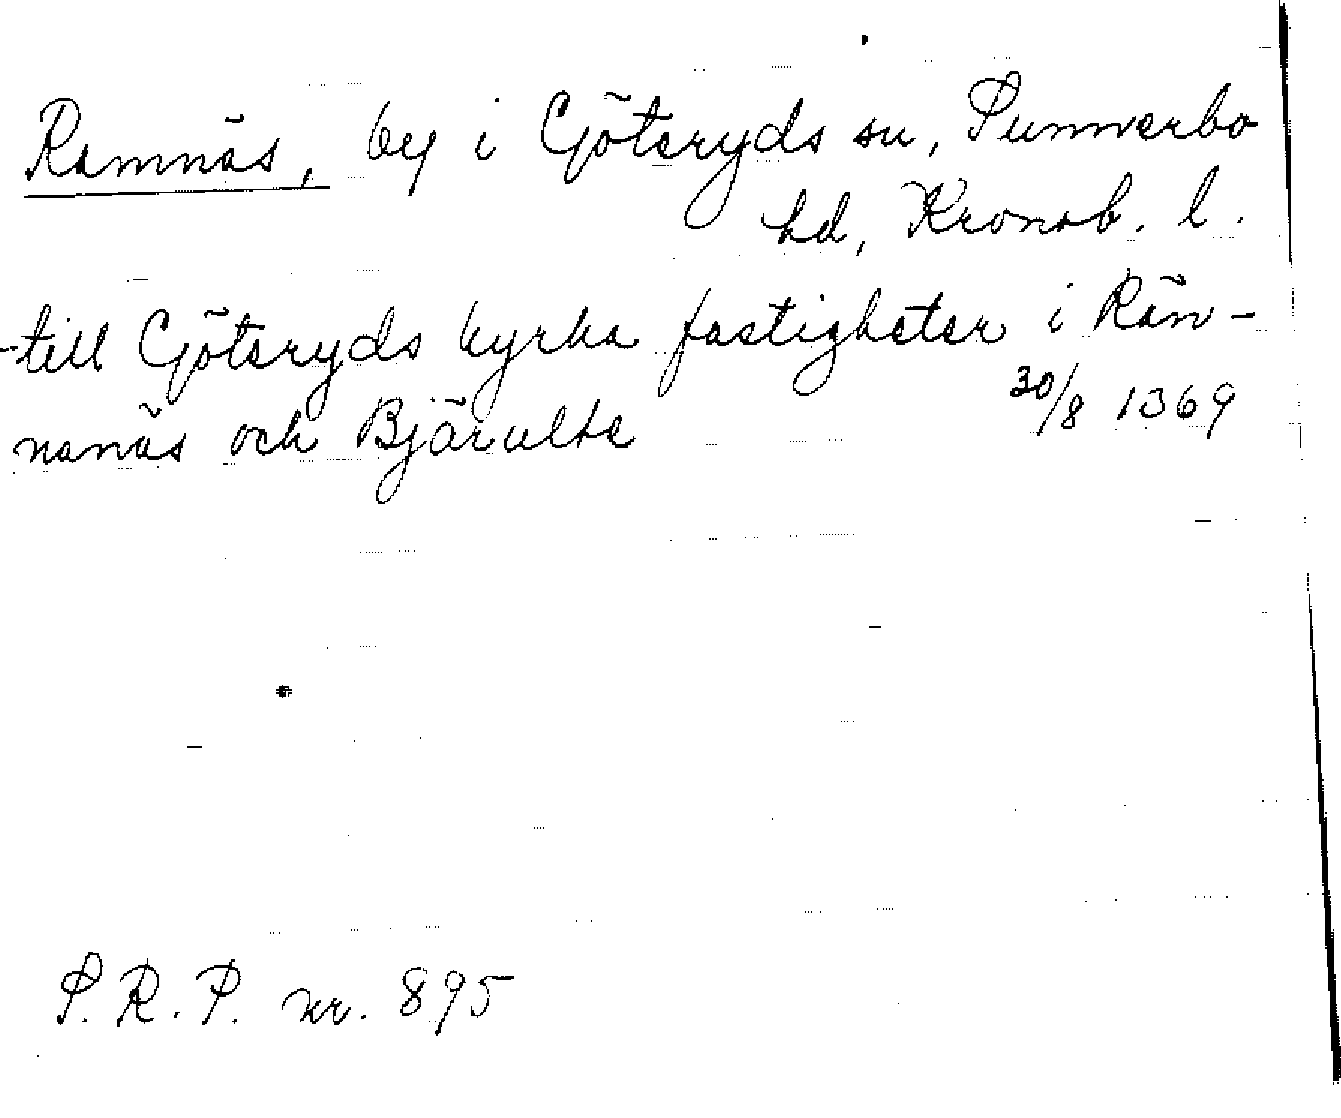 Ramnäs, by i Götaryds sn, Sunnerbo
hd, Kronob. l.
-till Götaryds kyrka fastigheter i Rån-
nanäs och Bjärulte
30/8 1369
S.R.P. nr. 895